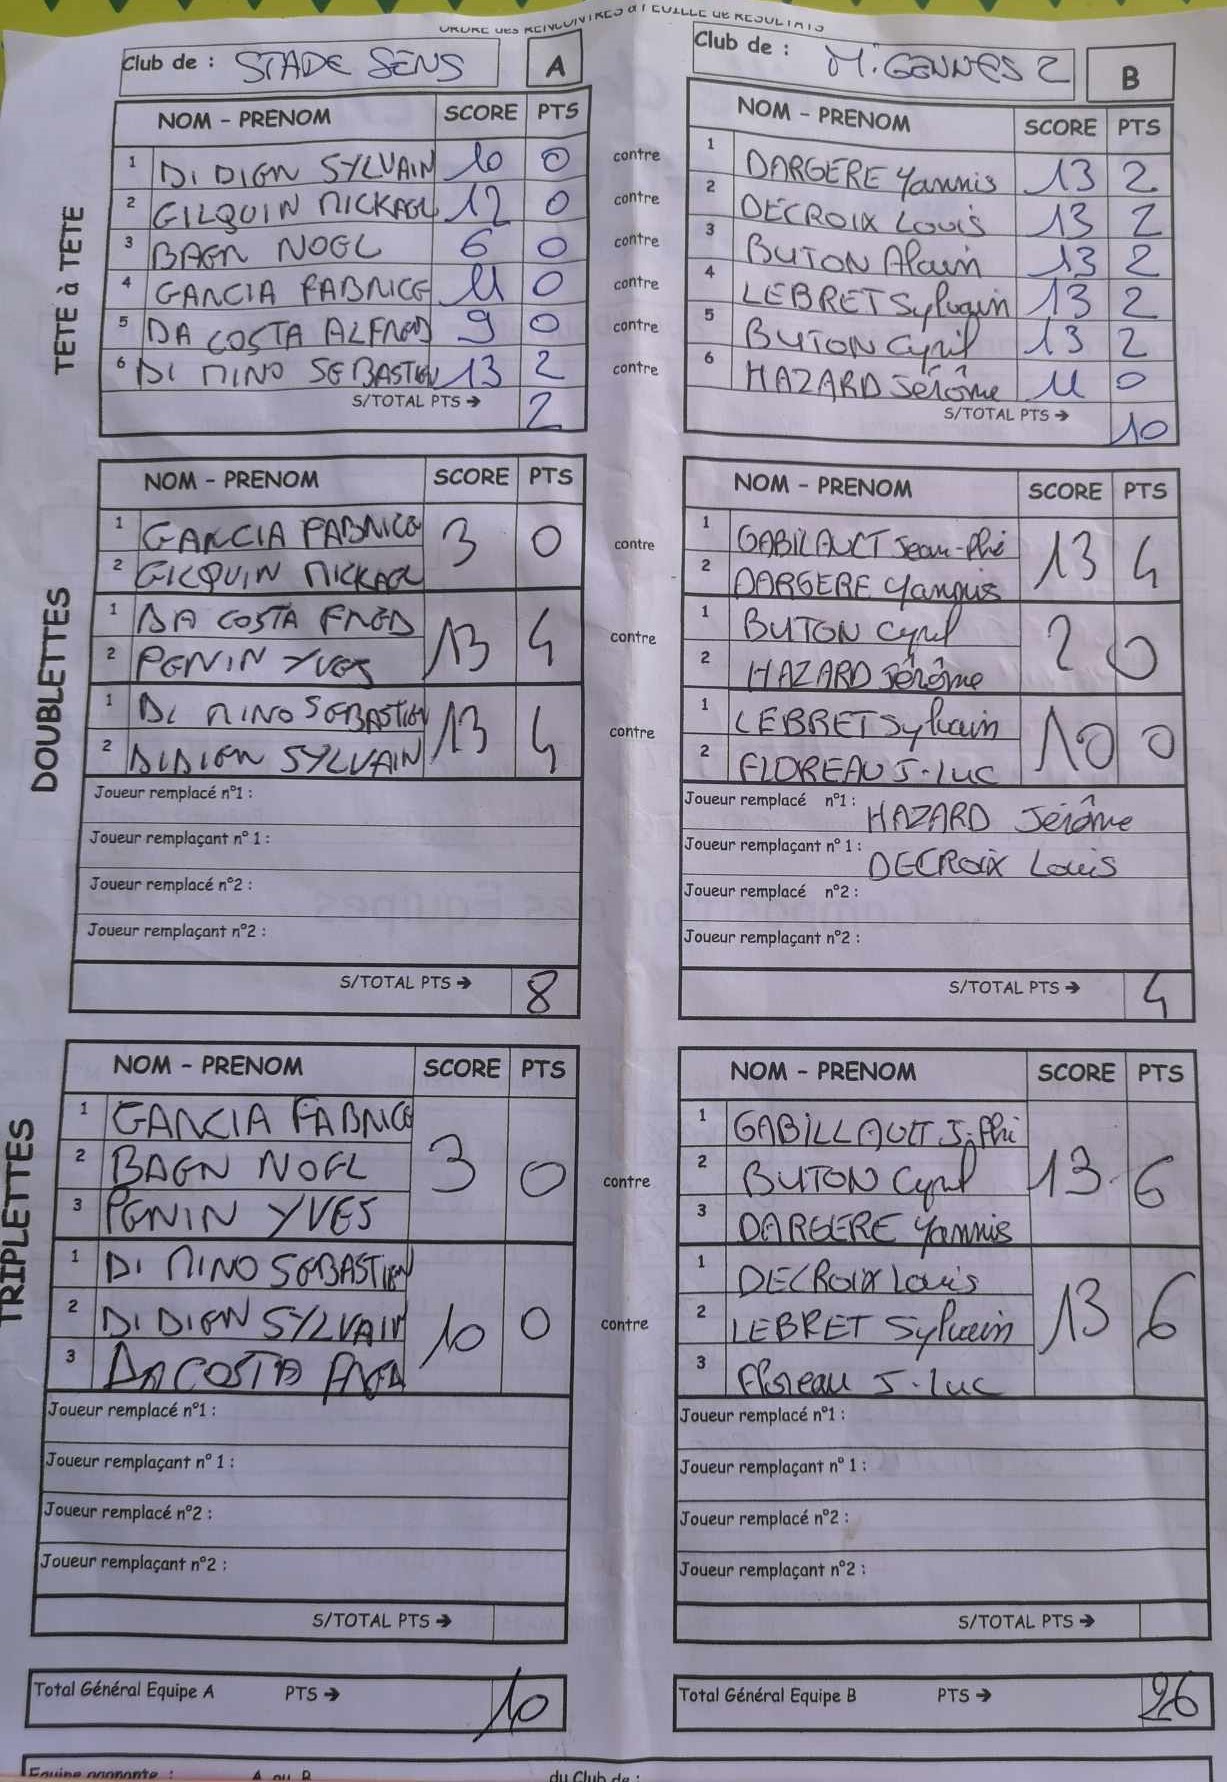 ORDRE des RENCONTRES & FEUILLE de RESULTATS
Club de : STADE SENS A
Club de : M. GENNES 2 B
TETE à TETE
NOM - PRENOM SCORE PTS
NOM - PRENOM SCORE PTS
1 DIDIEN SYLVAIN 10 0 contre 1 DARGERE Yannis 13 2
2 GILQUIN MICKAEL 12 0 contre 2 DECROIX Louis 13 2
3 BAEN NOEL 6 0 contre 3 BUTON Alain 13 2
4 GARCIA FABRICE 11 0 contre 4 LEBRET Sylvain 13 2
5 DA COSTA ALFRED 9 0 contre 5 BUTON Cyril 13 2
6 DI MINO SEBASTIEN 13 2 contre 6 HAZARD Jérôme 11 0
S/TOTAL PTS → 2
S/TOTAL PTS → 10
DOUBLETTES
NOM - PRENOM SCORE PTS
NOM - PRENOM SCORE PTS
1 GARCIA FABRICE 3 0 contre 1 GABILAULT Jean-Phi 13 4
2 GILQUIN MICKAEL 2 DARGERE Yannis
1 DA COSTA FRED 13 4 contre 1 BUTON Cyril 2 0
2 PERIN YVES 2 HAZARD Jérôme
1 DI MINO SEBASTIEN 13 4 contre 1 LEBRET Sylvain 10 0
2 DIDIEN SYLVAIN 2 FLOREAU J-Luc
Joueur remplacé n°1 :
Joueur remplacé n°1 : HAZARD Jérôme
Joueur remplaçant n° 1 :
Joueur remplaçant n° 1 : DECROIX Louis
Joueur remplacé n°2 :
Joueur remplacé n°2 :
Joueur remplaçant n°2 :
Joueur remplaçant n°2 :
S/TOTAL PTS → 8
S/TOTAL PTS → 4
TRIPLETTES
NOM - PRENOM SCORE PTS
NOM - PRENOM SCORE PTS
1 GARCIA FABRICE 1 GABILLAULT J-Phi
2 BAEN NOEL 3 0 contre 2 BUTON Cyril 13 6
3 PERIN YVES 3 DARGERE Yannis
1 DI MINO SEBASTIEN 1 DECROIX Louis
2 DIDIEN SYLVAIN 10 0 contre 2 LEBRET Sylvain 13 6
3 DA COSTA FRED 3 Floreau J-Luc
Joueur remplacé n°1 :
Joueur remplacé n°1 :
Joueur remplaçant n° 1 :
Joueur remplaçant n° 1 :
Joueur remplacé n°2 :
Joueur remplacé n°2 :
Joueur remplaçant n°2 :
Joueur remplaçant n°2 :
S/TOTAL PTS →
S/TOTAL PTS →
Total Général Equipe A PTS → 10
Total Général Equipe B PTS → 26
Equipe gagnante : A ou B du Club de :